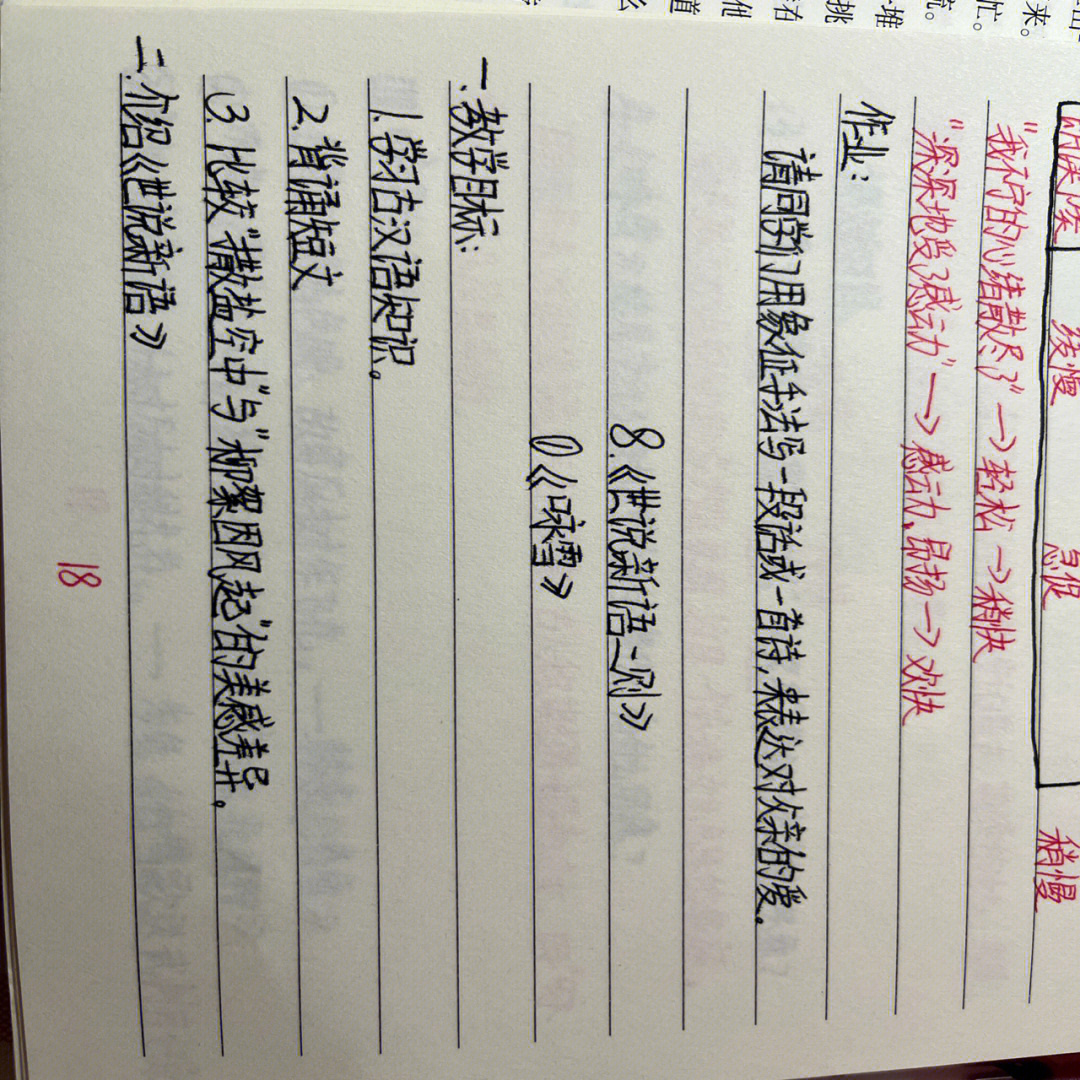 缓慢 急促 稍慢
"我的心绪散尽了"→轻松→稍快
"深深地受了感动"→感动、昂扬→欢快
作业：
请同学们用象征手法写一段话或一首诗，来表达对父亲的爱。
8.《世说新语二则》
《咏雪》
一.教学目标：
1.学习古汉语知识。
2.背诵短文
3.比较"撒盐空中"与"柳絮因风起"的美感差异。
二.介绍《世说新语》
18